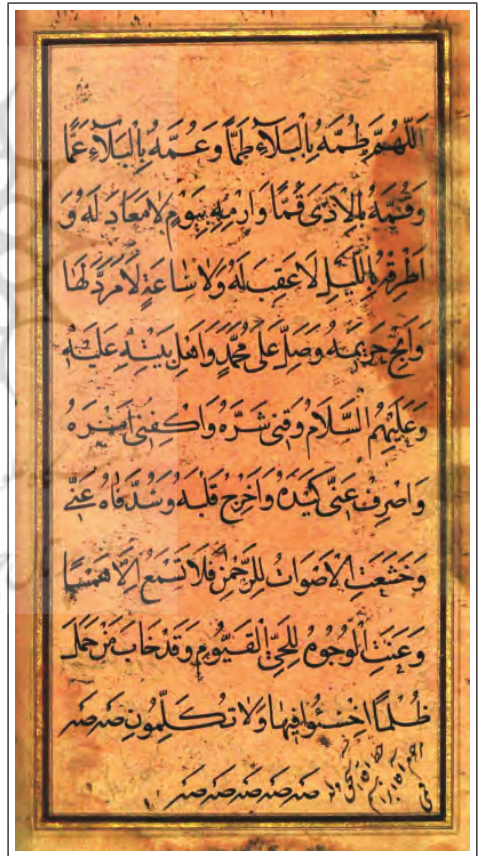 اَللّٰهُمَّ طُمَّهُ بِالْبَلَآءِ طَمًّا وَعُمَّهُ بِالْبَلَآءِ عَمًّا
وَقُمَّهُ بِالْاَذَى قُمًّا وَارْمِهِ بِيَوْمٍ لَامَعَادَ لَهُ وَ
اَطْرِقْهُ بِاللَّيْلِ لَا عَقِبَ لَهُ وَلَا سَاعَةٍ لَا مَرَدَّ لَهَا
وَاَبِحْ حَرِيمَهُ وَصَلِّ عَلَى مُحَمَّدٍ وَاَهْلِ بَيْتِهِ عَلَيْهِ
وَعَلَيْهِمُ السَّلَامُ وَقِنِى شَرَّهُ وَاكْفِنِى اَمْرَهُ
وَاصْرِفْ عَنِّى كَيْدَهُ وَاَحْرِجْ قَلْبَهُ وَسُدَّ فَاهُ عَنِّى
وَخَشَعَتِ الْاَصْوَاتُ لِلرَّحْمٰنِ فَلَا تَسْمَعُ اِلَّا هَمْسًا
وَعَنَتِ الْوُجُوهُ لِلْحَىِّ الْقَيُّومِ وَقَدْ خَابَ مَنْ حَمَلَ
ظُلْمًا اخْسَئُوا فِيهَا وَلَا تُكَلِّمُونِ صَهْ صَهْ
صَهْ صَهْ صَهْ صَهْ صَهْ